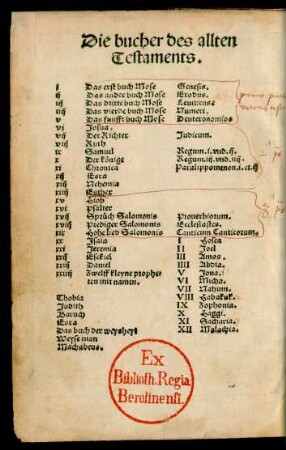 Die bucher des allten
Testaments.
j Das erst buch Mose Genesis.
ij Das ander buch Mose Exodus.
iij Das dritte buch Mose Leuiticus
iiij Das vierde buch Mose Numeri.
v Das funfft buch Mose Deuteronomios
vi Josua.
vij Der Richter Judicum.
viij Ruth
ix Samuel Regum.i.vnd.ij.
x Der könige Regum.iij.vnd.iiij.
xi Chronica Paralippomenon.i.et.ij
xij Esra
xiij Nehemia
xiiij Esther
xv Hiob
xvi Psalter
xvij Sprüch Salomonis Prouerbiorum.
xviij Prediger Salomonis Ecclesiastes.
xix Hohelied Salomonis Canticum Canticorum.
xx Jsaia
xxi Jeremia
xxij Ezekiel
xxiij Daniel
xxiiij Zwelff kleyne prophe
ten mit namen.
I Hosea
II Joel
III Amos.
IIII Abdia.
V Jona.
VI Micha.
VII Nahum.
VIII Habakuk.
IX Zophonia.
X Haggi.
XI Sacharia.
XII Malachia.
Thobia
Judith
Baruch
Esra
Das buch der weysheyt
Weyse man
Machabeus.
Ex
Biblioth. Regia
Berolinensi.